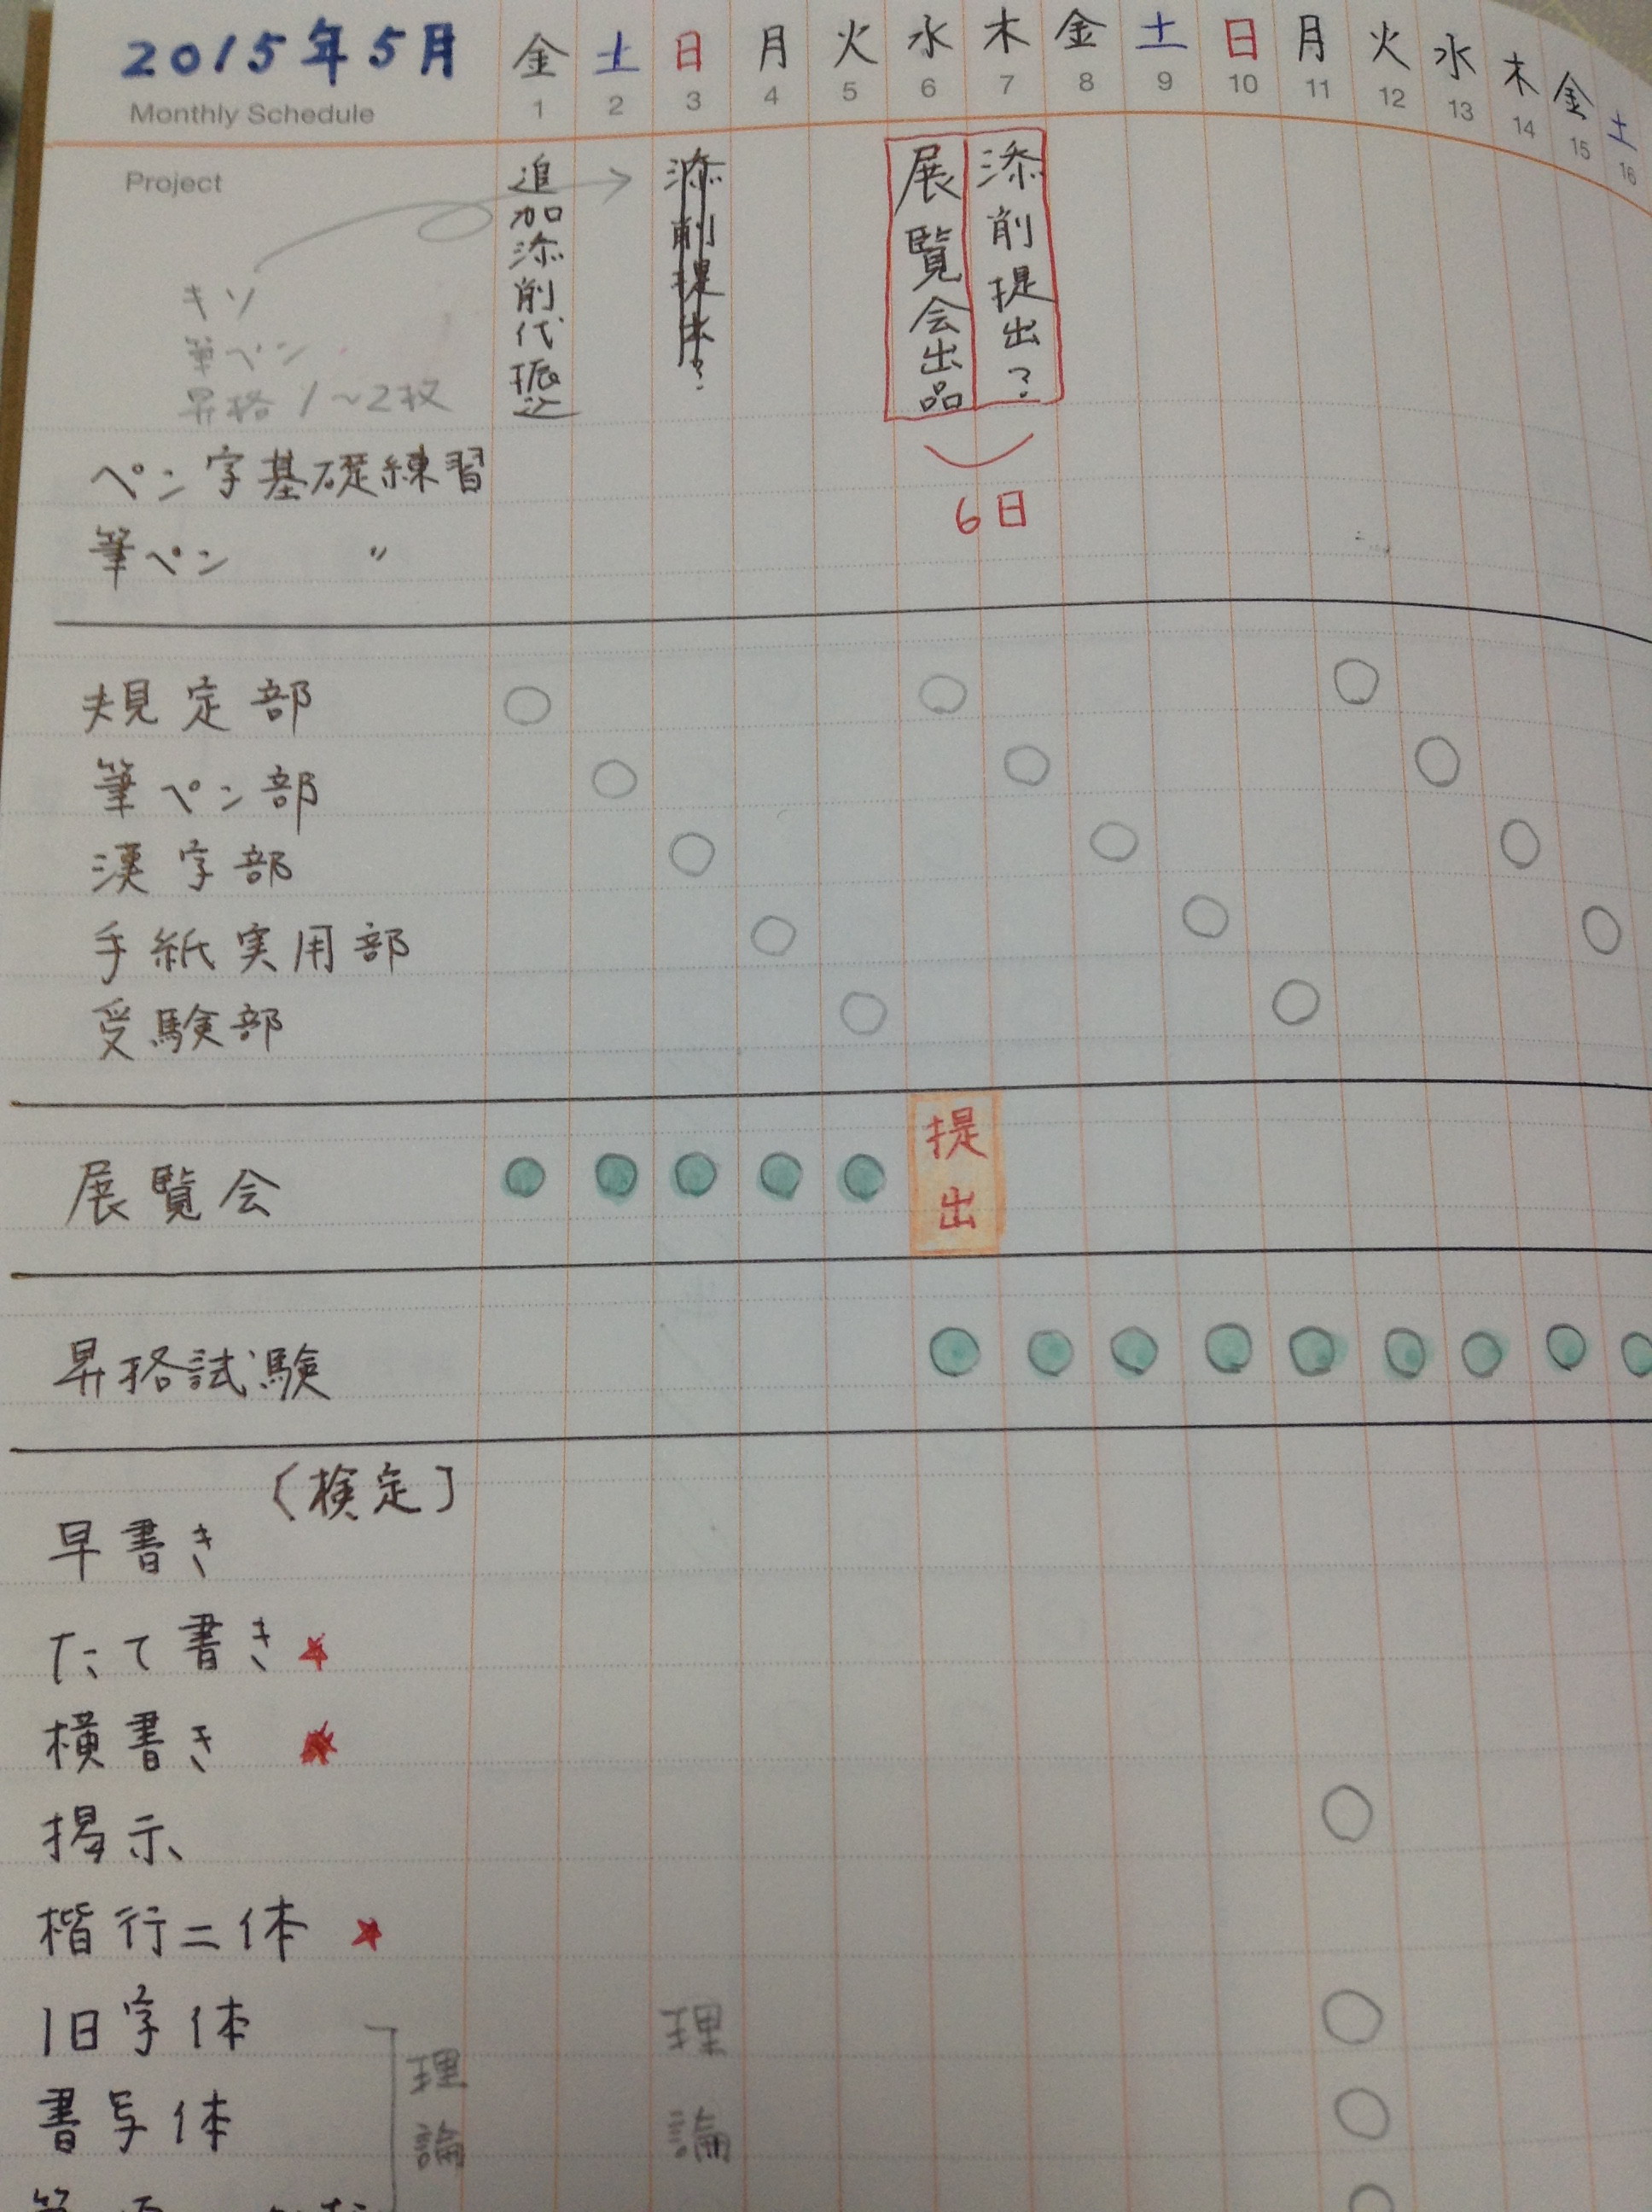 2015年5月
Monthly Schedule
金 土 日 月 火 水 木 金 土 日 月 火 水 木 金 土
1 2 3 4 5 6 7 8 9 10 11 12 13 14 15 16
Project
追加添削代振込
添削提出?
展覧会出品
添削提出?
6日
キソ
筆ペン
昇格1~2枚
ペン字基礎練習
筆ペン 〃
規定部
筆ペン部
漢字部
手紙実用部
受験部
展覧会
提出
昇格試験
〔検定〕
早書き
たて書き★
横書き★
掲示
楷行二体★
旧字体
書写体
理論
理論